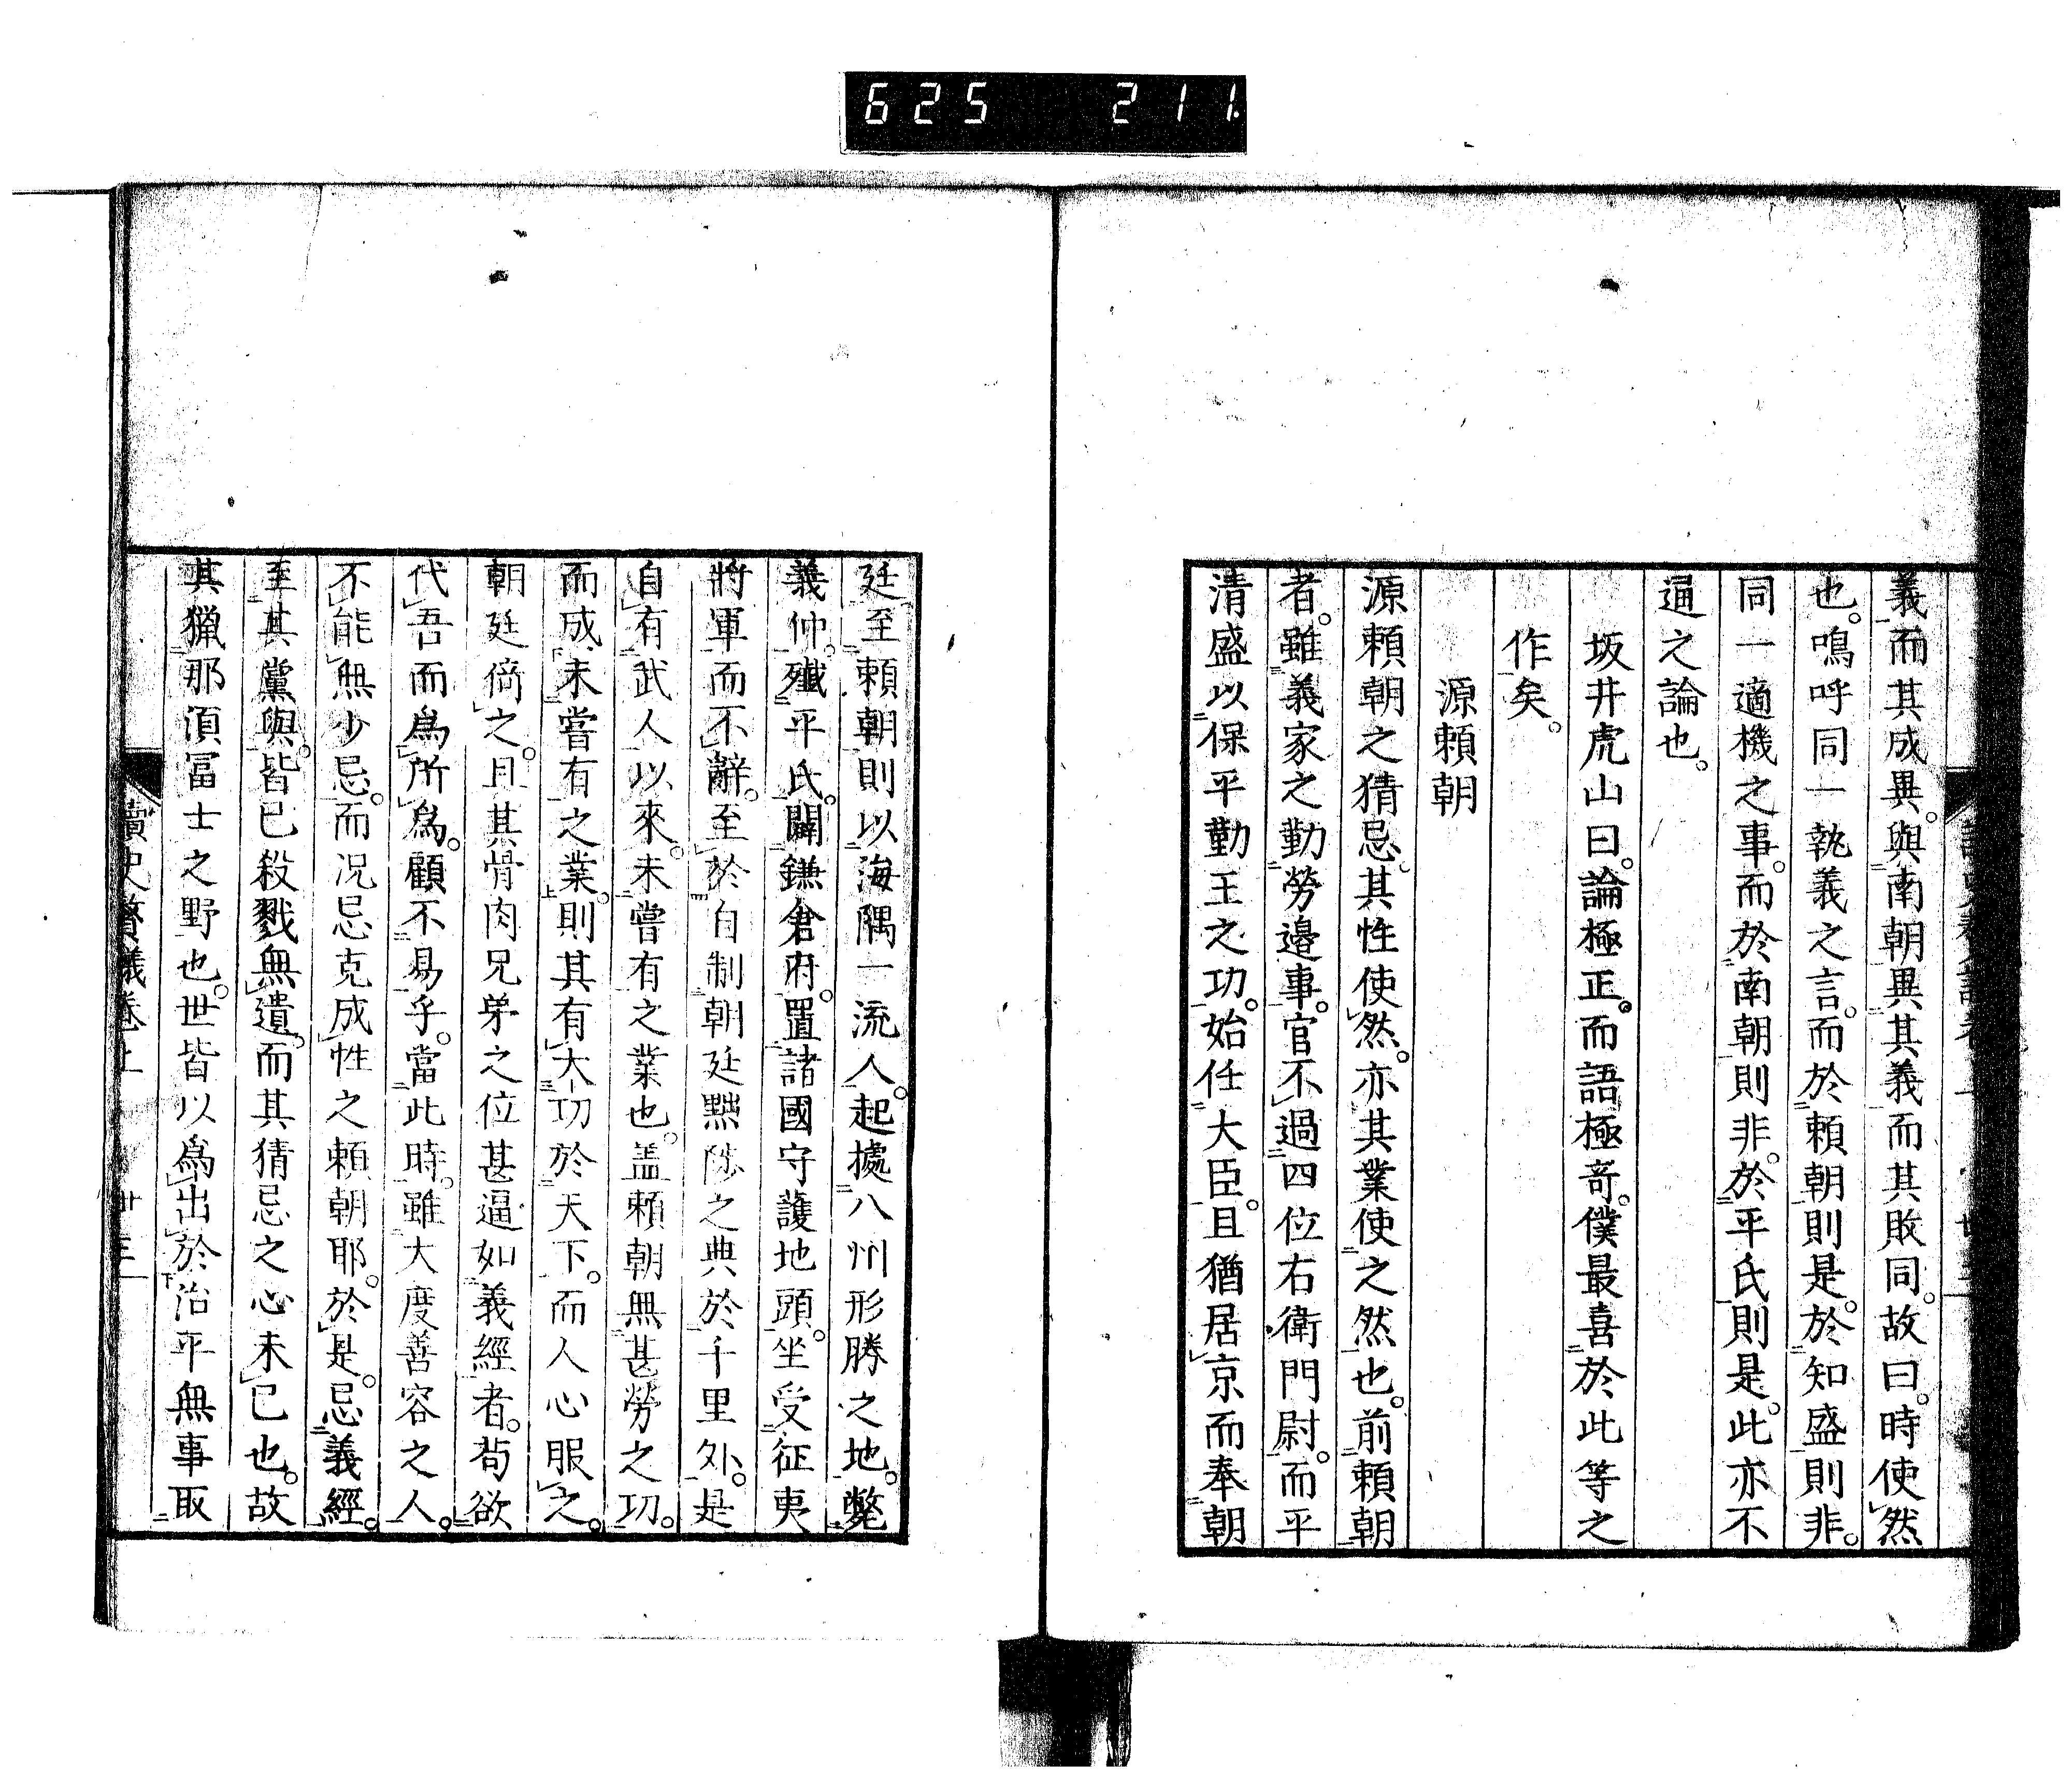 625 211
義而其成異。與南朝異其義而其敗同。故曰。時使然
也。鳴呼同一執義之言。而於頼朝則是。於知盛則非。
同一適機之事。而於南朝則非。於平氏則是。此亦不
通之論也。
坂井虎山曰。論極正。而語極奇。僕最喜於此等之
作矣。
源頼朝
源頼朝之猜忌。其性使然。亦其業使之然也。前頼朝
者。雖義家之勤勞邉事。官不過四位右衛門尉。而平
清盛以保平勤王之功。始任大臣。且猶居京而奉朝
廷至頼朝則以海隅一流人。起據八州形勝之地。斃
義仲。殲平氏。闢鎌倉府。置諸國守護地頭。坐受征夷
將軍而不辭。至於自制朝廷黜陟之典於千里外。是
自有武人以來。未嘗有之業也。盖頼朝無甚勞之功。
而成未嘗有之業。則其有大功於天下。而人心服之。
朝廷倚之。且其骨肉兄弟之位甚逼如義經者。苟欲
代吾而為所為。顧不易乎。當此時。雖大度善容之人。
不能無少忌。而况忌克成性之頼朝耶。於是。忌義經。
至其黨與。皆已殺戮無遺。而其猜忌之心未已也。故
其獵那須冨士之野也。世皆以為出於治平無事取
讀史贅議卷上 廿三